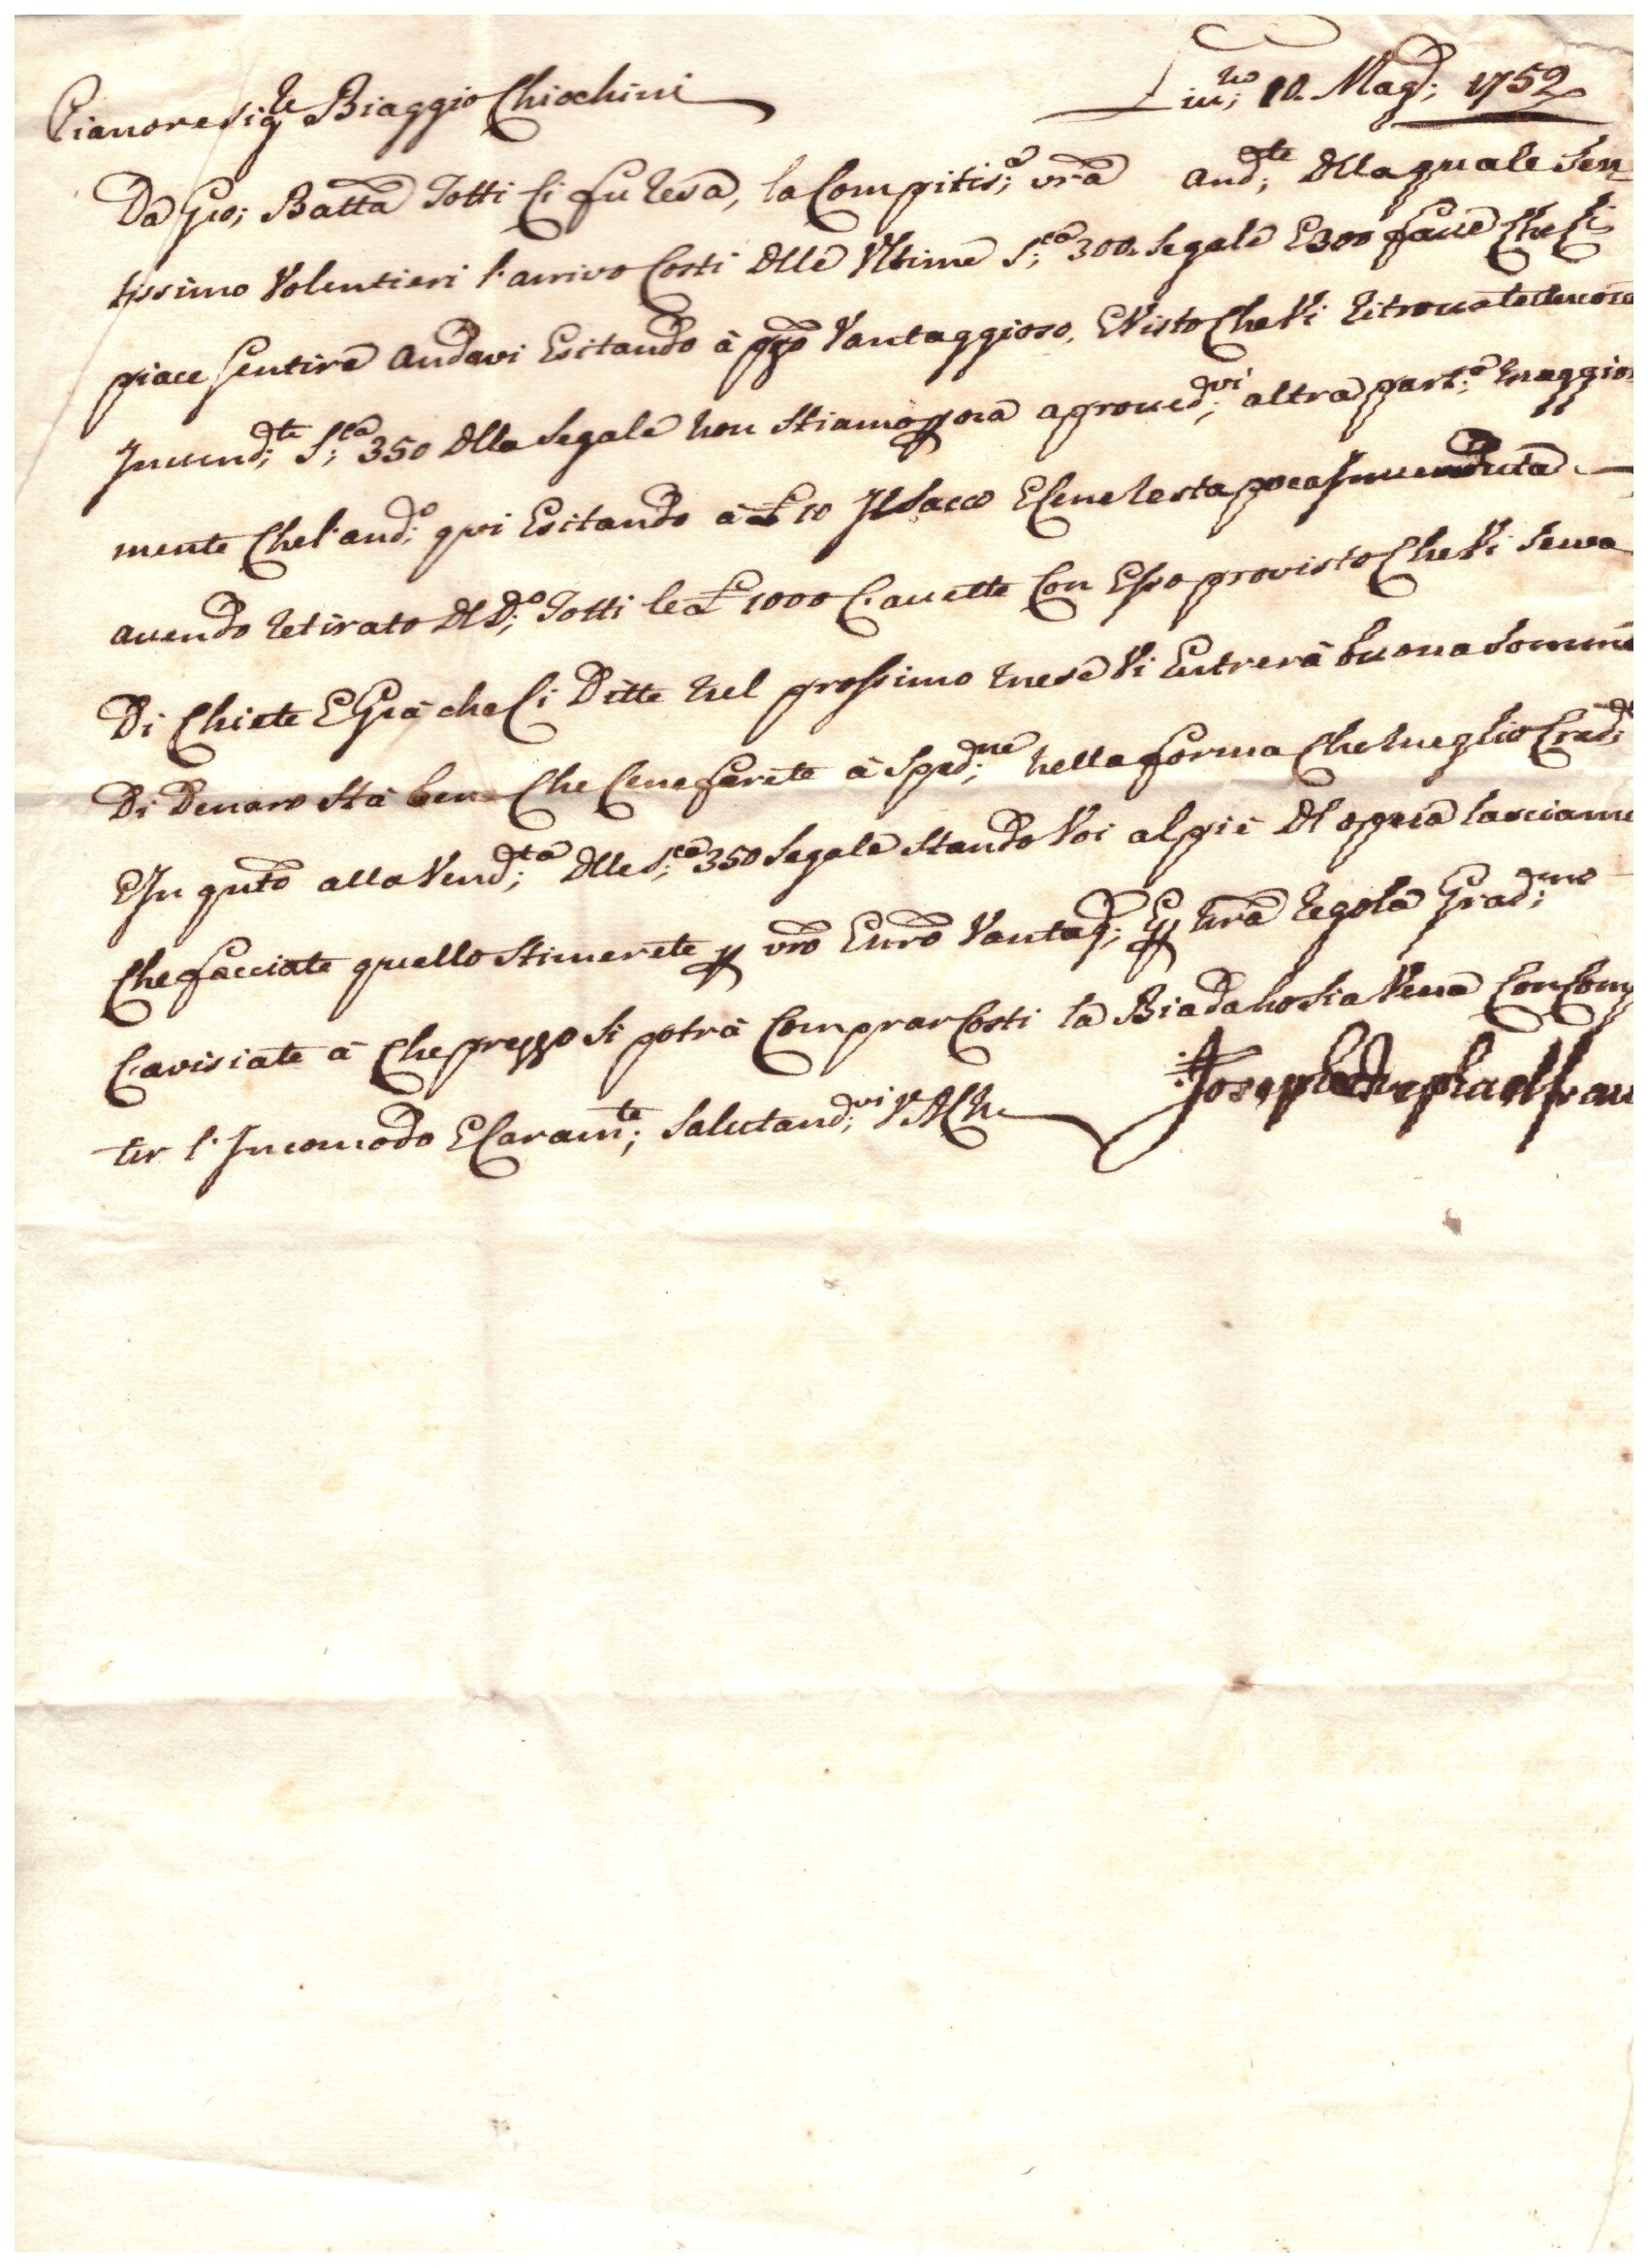 Liu;no 10. Mag; 1752
Pianore Sigre Biaggio Chiochini
Da Gio; Batta Totti Ci fu resa, la Compitis;a vra and;te dlla quale Sen
tissimo Volentieri l'arrivo Costi dlle Ultime S;ca 300. Segale E 300 faue Che Ci
piace Sentire andavi Esitando à pzo Vantaggioso, E Visto Che Vi ritrouate Ancora
Inuend;te S;ca 350 dlla Segale non Stiamo p ora a proued;vi altra part;a maggior
mente Che l'and;o qui Esitando à £ 10 Il Sacco E Ce ne resta poca Inuenduta
auendo retirato dl D;o Totti le £ 1000 C'auette Con Esso provisto Che Vi Serva
Di Chiete E Già che Ci Ditte nel prossimo mese Vi Entrerà buona Somma
Di Denaro Stà bene Che Ce ne farete à Sped;ne nella forma Che meglio Cred;
E In qnto alla Vend;ta dlle S;ca 350 Segale Stando Voi al piè dl opera lasciamo
Che facciate quello Stimerete p vro E nro Vantag; E p nra regola Grad;mo
C'avisiate à Che prezzo Si potrà Comprar Costi la Biada nostra Con Com
ter l'Incomodo E Caram;te Salutand;vi
Joseph & Raphael Fran